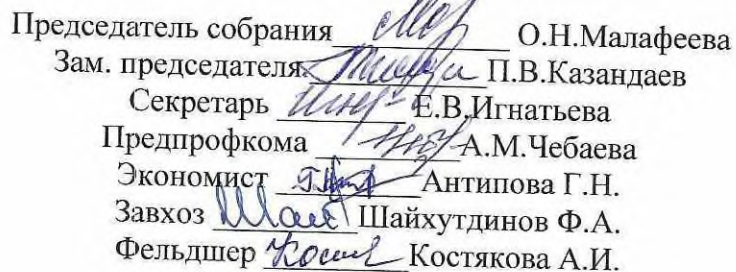 Председатель собрания О.Н.Малафеева
Зам. председателя П.В.Казандаев
Секретарь Е.В.Игнатьева
Предпрофкома А.М.Чебаева
Экономист Антипова Г.Н.
Завхоз Шайхутдинов Ф.А.
Фельдшер Костякова А.И.